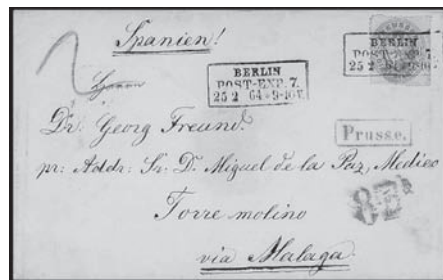 Spanien!
BERLIN
POST-EXP. 7.
25 2 64 * 9-10 V.
BERLIN
POST-EXP. 7.
Herrn
Dr. Georg Freund.
Prusse.
pr: Addr: Sr. D. Miguel de la Paz, Medico
Torre molino
via Malaga.